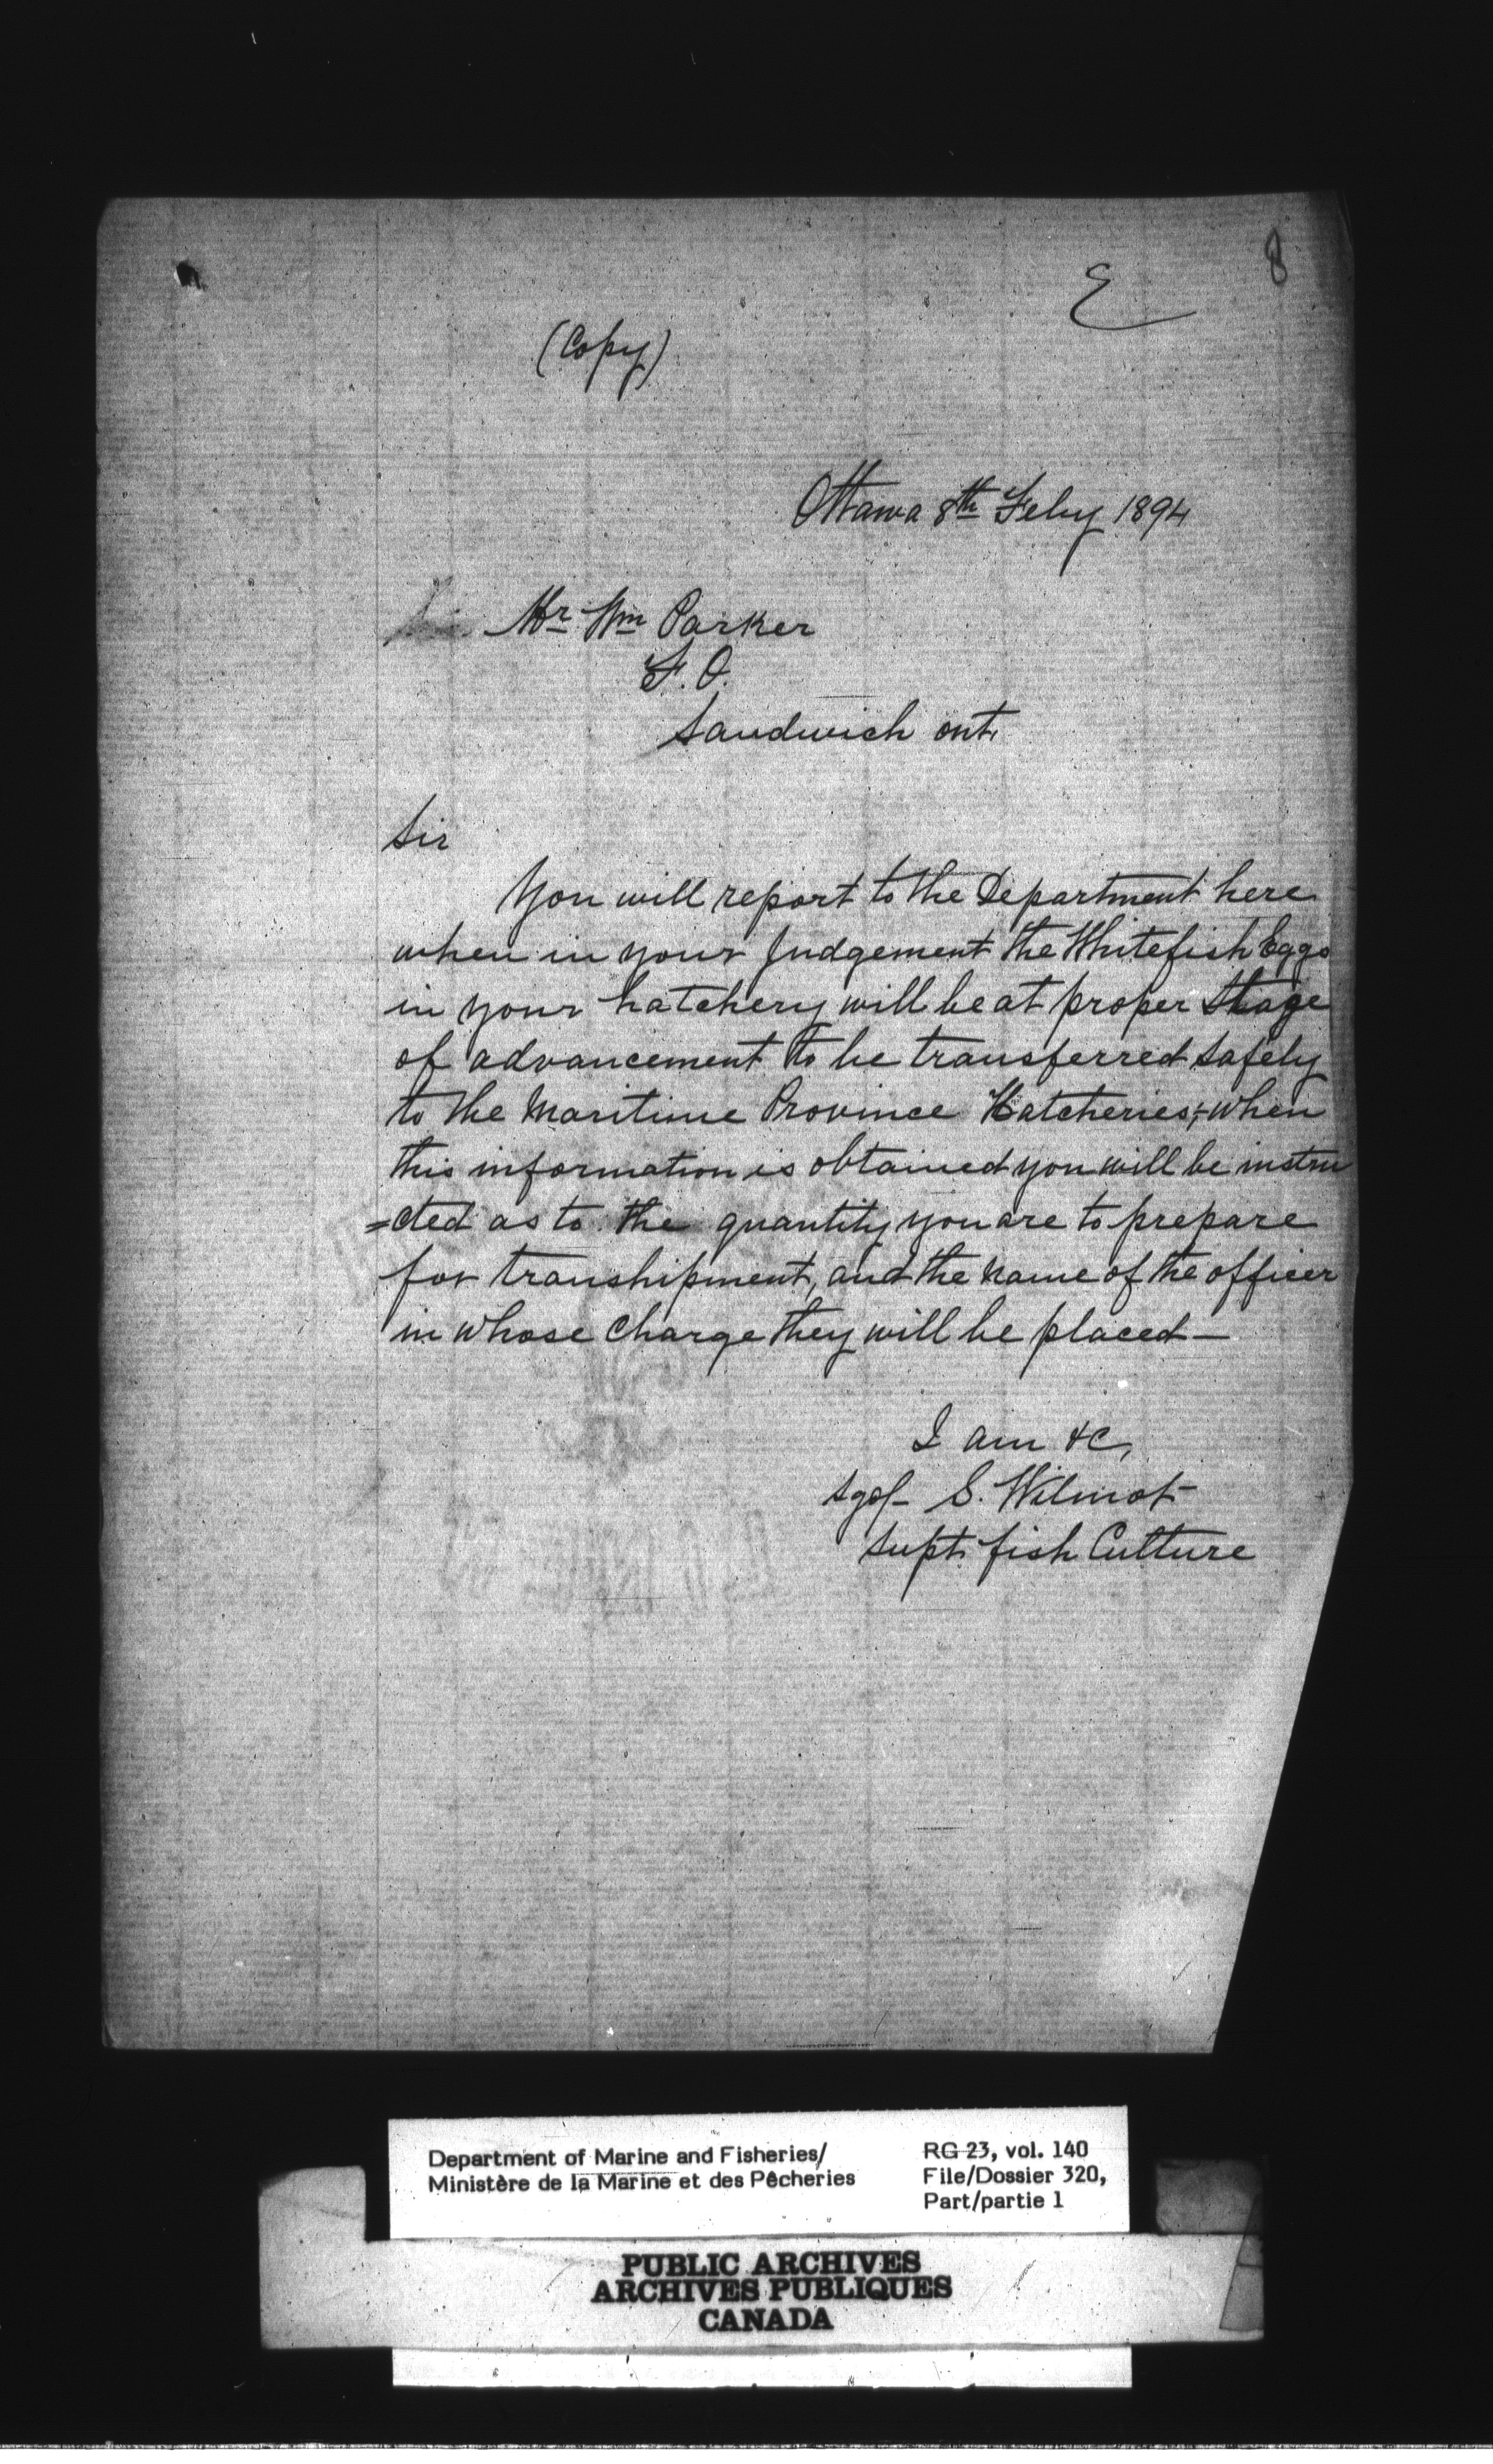 8
E
(Copy)
Ottawa 8th Feby 1894
Mr Wm Parker
F.O.
Sandwich ont.
Sir
You will report to the Department here
when in your Judgement the Whitefish Eggs
in your hatchery will be at proper Stage
of advancement to be transferred Safely
to the Maritime Province Hatcheries, + when
this information is obtained you will be instru
=cted as to the quantity you are to prepare
for transhipment, and the name of the officer
in whose Charge they will be placed —
I am &c,
Sgd- S. Wilmot
Supt. fish Culture
Department of Marine and Fisheries/
Ministère de la Marine et des Pêcheries
RG 23, vol. 140
File/Dossier 320,
Part/partie 1
PUBLIC ARCHIVES
ARCHIVES PUBLIQUES
CANADA